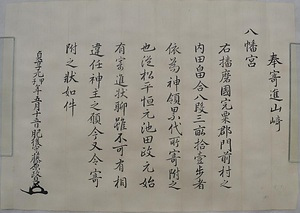 奉寄進山崎
八幡宮
右播磨國宍粟郡門前村之
内田畠合八段三畝拾壹歩者
依為神領累代所寄附之
也從松平恒元池田政元始
有寄進状聊雖不可有相
違任神主之願今又令寄
附之状如件
貞享元甲子年五月十五日肥後守